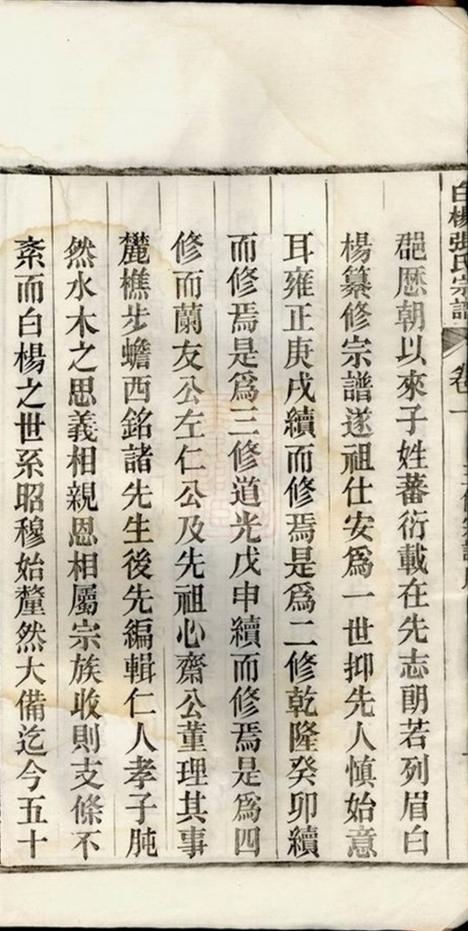 白楊張氏宗譜
卷一
郡歷朝以來子姓蕃衍載在先志朗若列眉白
楊纂修宗譜遂祖仕安爲一世抑先人慎始意
耳雍正庚戌續而修焉是爲二修乾隆癸卯續
而修焉是爲三修道光戊申續而修焉是爲四
修而蘭友公左仁公及先祖心齋公董理其事
麓樵步蟾西銘諸先生後先編輯仁人孝子肫
然水木之思義相親恩相屬宗族收則支條不
紊而白楊之世系昭穆始釐然大備迄今五十